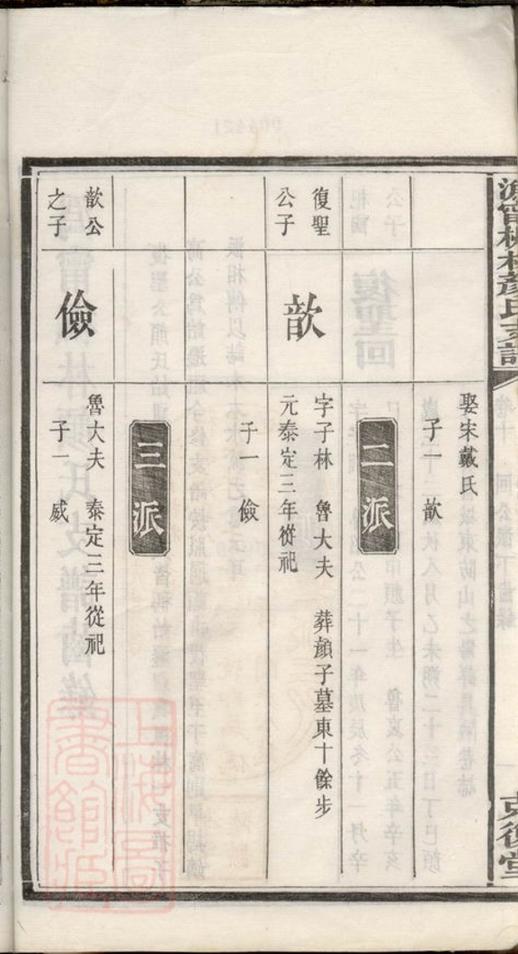 娶宋戴氏
子一　歆
二派
復聖
公子
歆
字子林　魯大夫　葬顏子墓東十餘步
元泰定三年從祀
子一　儉
三派
歆公
之子
儉
魯大夫　泰定三年從祀
子一　威